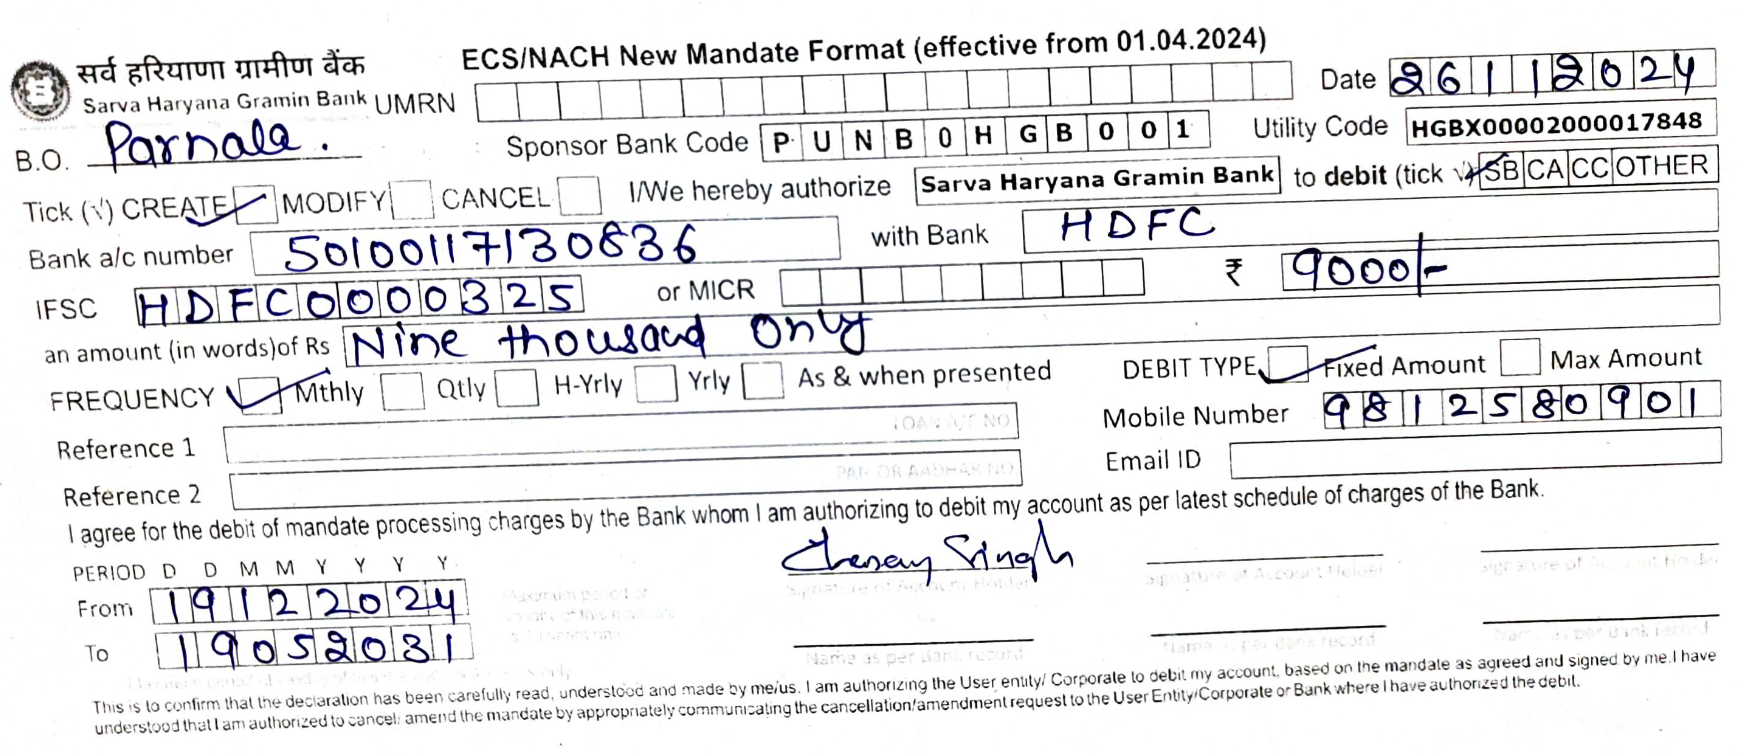 सर्व हरियाणा ग्रामीण बैंक
Sarva Haryana Gramin Bank
ECS/NACH New Mandate Format (effective from 01.04.2024)
UMRN
Date 26112024
B.O. Parnala.
Sponsor Bank Code PUNB0HGB001
Utility Code HGBX00002000017848
Tick (√) CREATE MODIFY CANCEL I/We hereby authorize Sarva Haryana Gramin Bank to debit (tick √) SB CA CC OTHER
Bank a/c number 50100117130836 with Bank HDFC
IFSC HDFC0000325 or MICR ₹ 9000/-
an amount (in words)of Rs Nine thousand only
FREQUENCY Mthly Qtly H-Yrly Yrly As & when presented DEBIT TYPE Fixed Amount Max Amount
Reference 1 LOAN A/C NO Mobile Number 9812580901
Reference 2 PAN OR AADHAR NO Email ID
I agree for the debit of mandate processing charges by the Bank whom I am authorizing to debit my account as per latest schedule of charges of the Bank.
PERIOD D D M M Y Y Y Y
From 19122024
To 19052031
Singh
Signature of Account Holder Signature of Account Holder Signature of Account Holder
Name as per bank record Name as per bank record Name as per bank record
This is to confirm that the declaration has been carefully read, understood and made by me/us. I am authorizing the User entity/ Corporate to debit my account, based on the mandate as agreed and signed by me.I have
understood that I am authorized to cancel: amend the mandate by appropriately communicating the cancellation/amendment request to the User Entity/Corporate or Bank where I have authorized the debit.